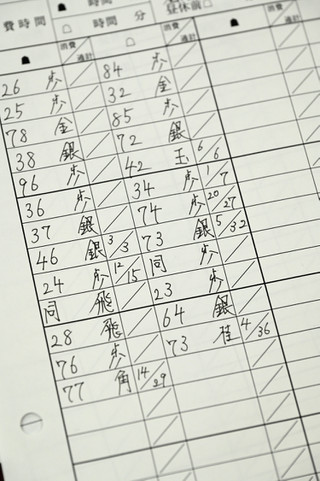 費時間 ☗ 時間 昼休前 ☗
☖ 時間 分
☗ 消費 通計 ☖ 消費 通計 ☗
26 歩 84 歩
25 歩 32 金
78 金 85 歩
38 銀 72 銀
96 歩 42 玉 6/6
36 歩 34 歩 1/7
37 銀 74 歩 20/27
46 銀 3/3 73 銀 5/32
24 歩 12/15 同 歩
同 飛 23 歩
28 飛 64 銀
76 歩 73 桂 4/36
77 角 14/29